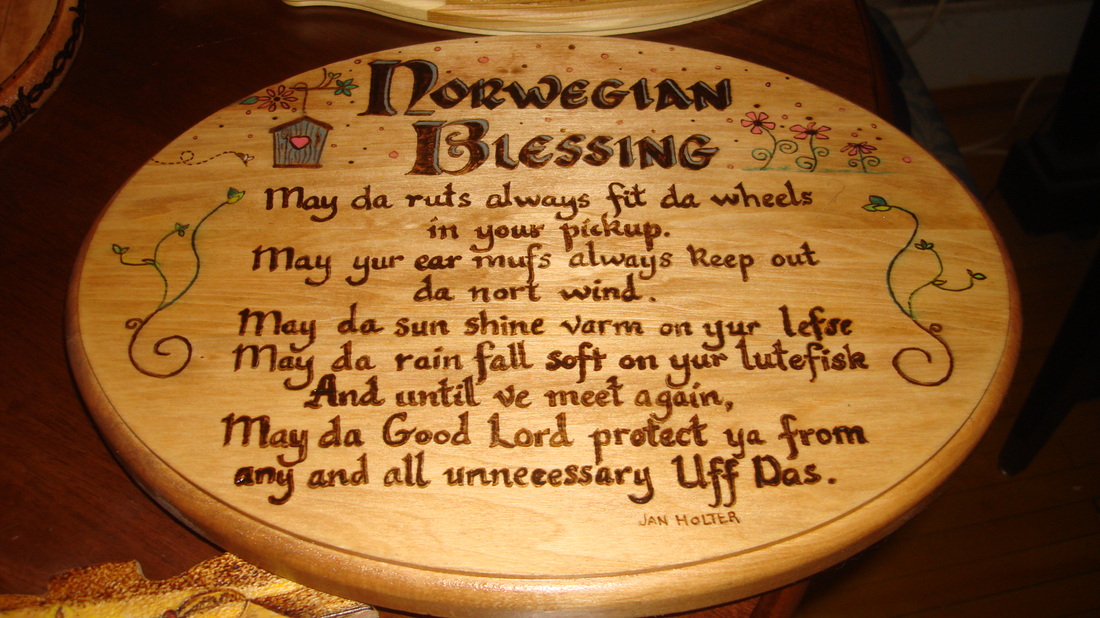 Norwegian
Blessing
May da ruts always fit da wheels
in your pickup.
May yur ear mufs always keep out
da nort wind.
May da sun shine varm on yur lefse
May da rain fall soft on yur lutefisk
And until ve meet again,
May da Good Lord protect ya from
any and all unnecessary Uff Das.
JAN HOLTER